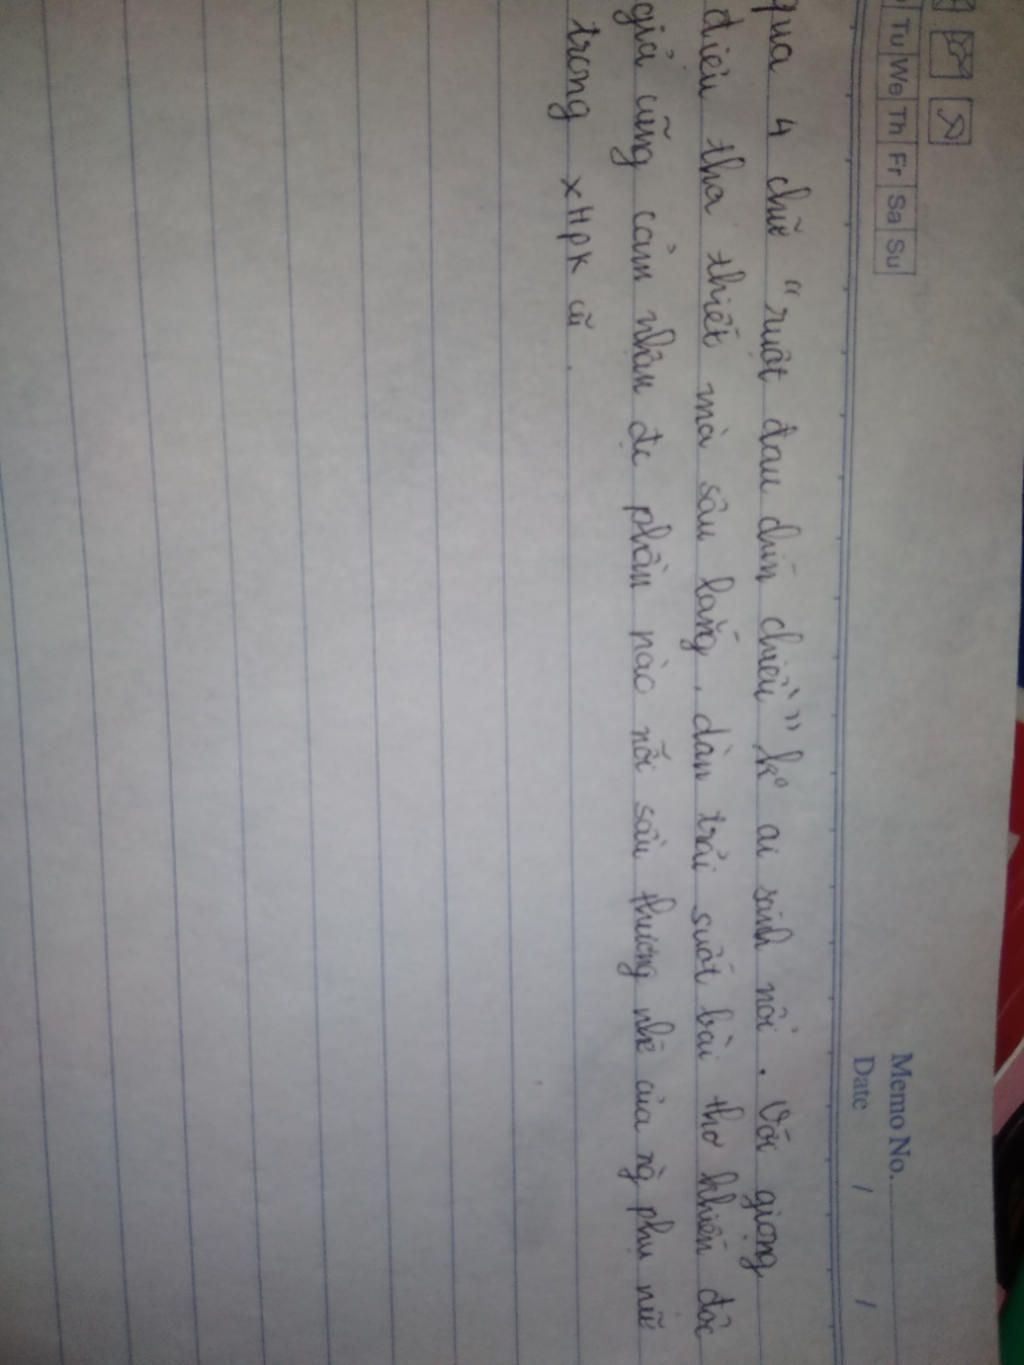 Tu We Th Fr Sa Su
Memo No.
Date / /
qua 4 chữ "ruột đau chín chiều" ko ai sánh nổi. Với giọng
điệu tha thiết mà sâu lắng, dàn trải suốt bài thơ khiến độc
giả cũng cảm nhận đc phần nào nỗi sầu thương nhớ của ng phụ nữ
trong XHPK cũ.